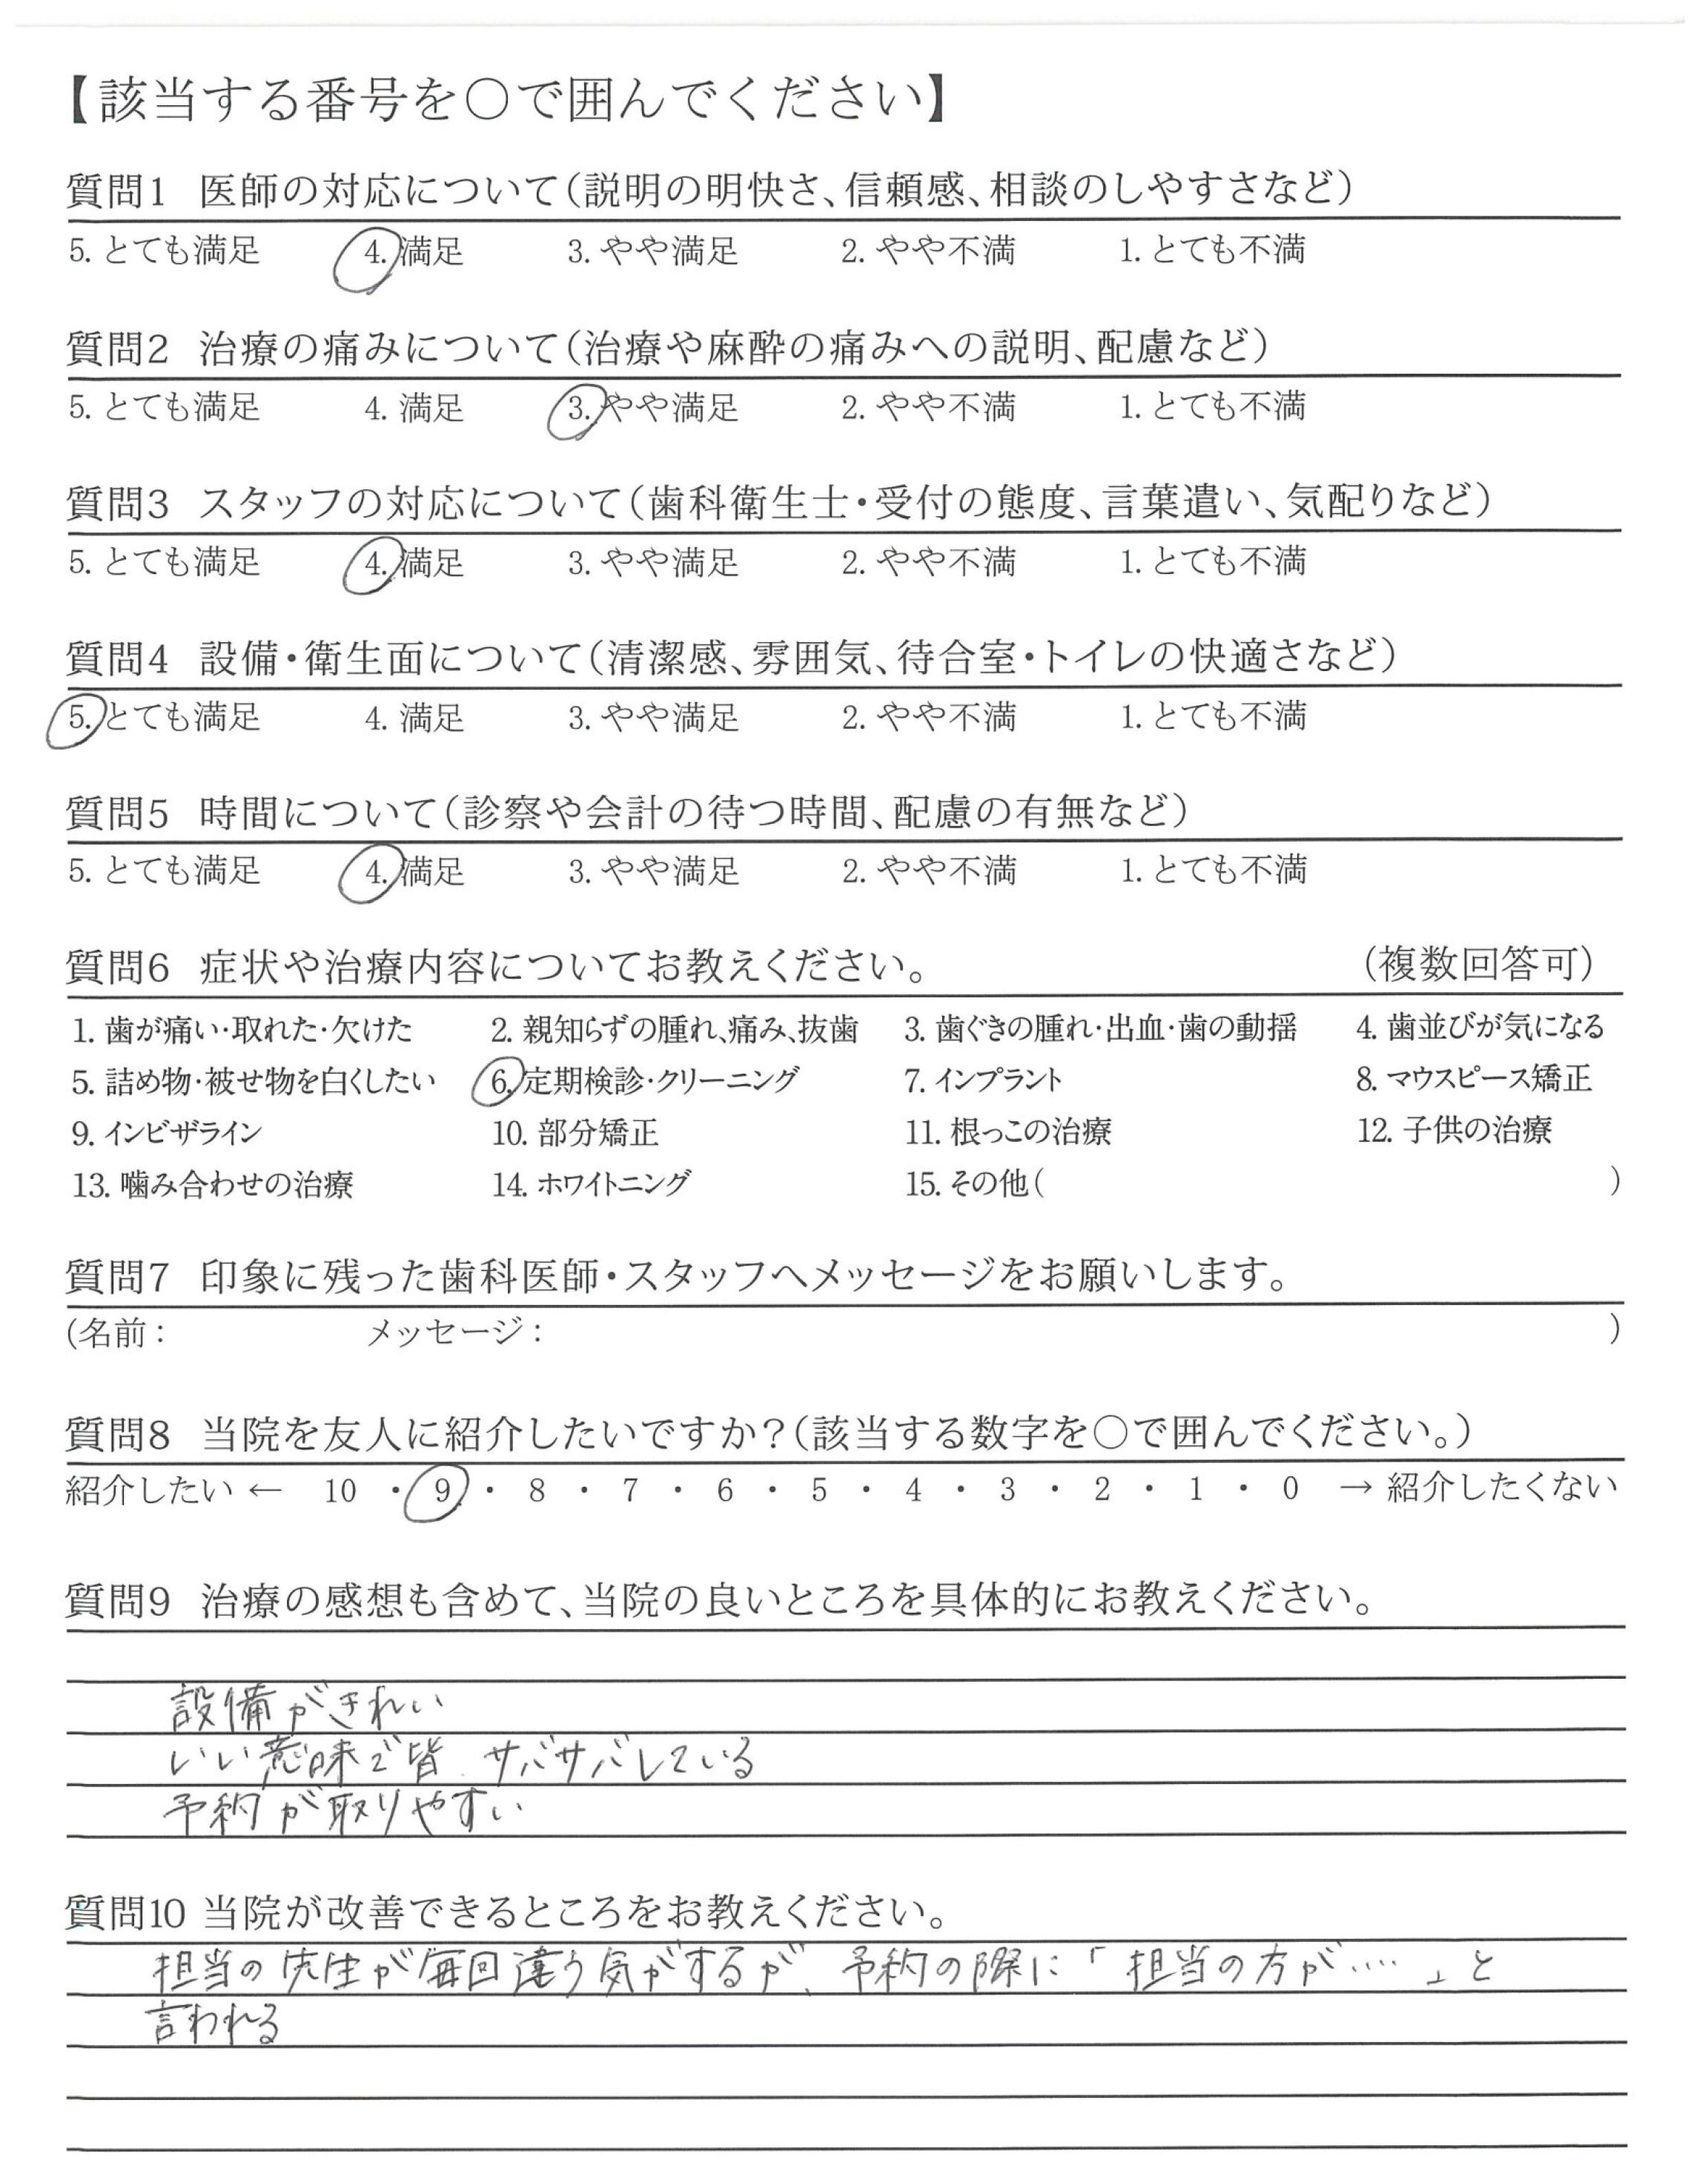 【該当する番号を〇で囲んでください】
質問1 医師の対応について（説明の明快さ、信頼感、相談のしやすさなど）
5. とても満足 4. 満足 3. やや満足 2. やや不満 1. とても不満
質問2 治療の痛みについて（治療や麻酔の痛みへの説明、配慮など）
5. とても満足 4. 満足 3. やや満足 2. やや不満 1. とても不満
質問3 スタッフの対応について（歯科衛生士・受付の態度、言葉遣い、気配りなど）
5. とても満足 4. 満足 3. やや満足 2. やや不満 1. とても不満
質問4 設備・衛生面について（清潔感、雰囲気、待合室・トイレの快適さなど）
5. とても満足 4. 満足 3. やや満足 2. やや不満 1. とても不満
質問5 時間について（診察や会計の待つ時間、配慮の有無など）
5. とても満足 4. 満足 3. やや満足 2. やや不満 1. とても不満
質問6 症状や治療内容についてお教えください。 （複数回答可）
1. 歯が痛い・取れた・欠けた 2. 親知らずの腫れ、痛み、抜歯 3. 歯ぐきの腫れ・出血・歯の動揺 4. 歯並びが気になる
5. 詰め物・被せ物を白くしたい 6. 定期検診・クリーニング 7. インプラント 8. マウスピース矯正
9. インビザライン 10. 部分矯正 11. 根っこの治療 12. 子供の治療
13. 噛み合わせの治療 14. ホワイトニング 15. その他( )
質問7 印象に残った歯科医師・スタッフへメッセージをお願いします。
(名前： メッセージ： )
質問8 当院を友人に紹介したいですか？（該当する数字を〇で囲んでください。）
紹介したい ← 10 ・ 9 ・ 8 ・ 7 ・ 6 ・ 5 ・ 4 ・ 3 ・ 2 ・ 1 ・ 0 → 紹介したくない
質問9 治療の感想も含めて、当院の良いところを具体的にお教えください。
設備がきれい
いい意味で皆 サバサバしている
予約が取りやすい
質問10 当院が改善できるところをお教えください。
担当の先生が毎回違う気がするが、予約の際に「担当の方が‥‥」と
言われる